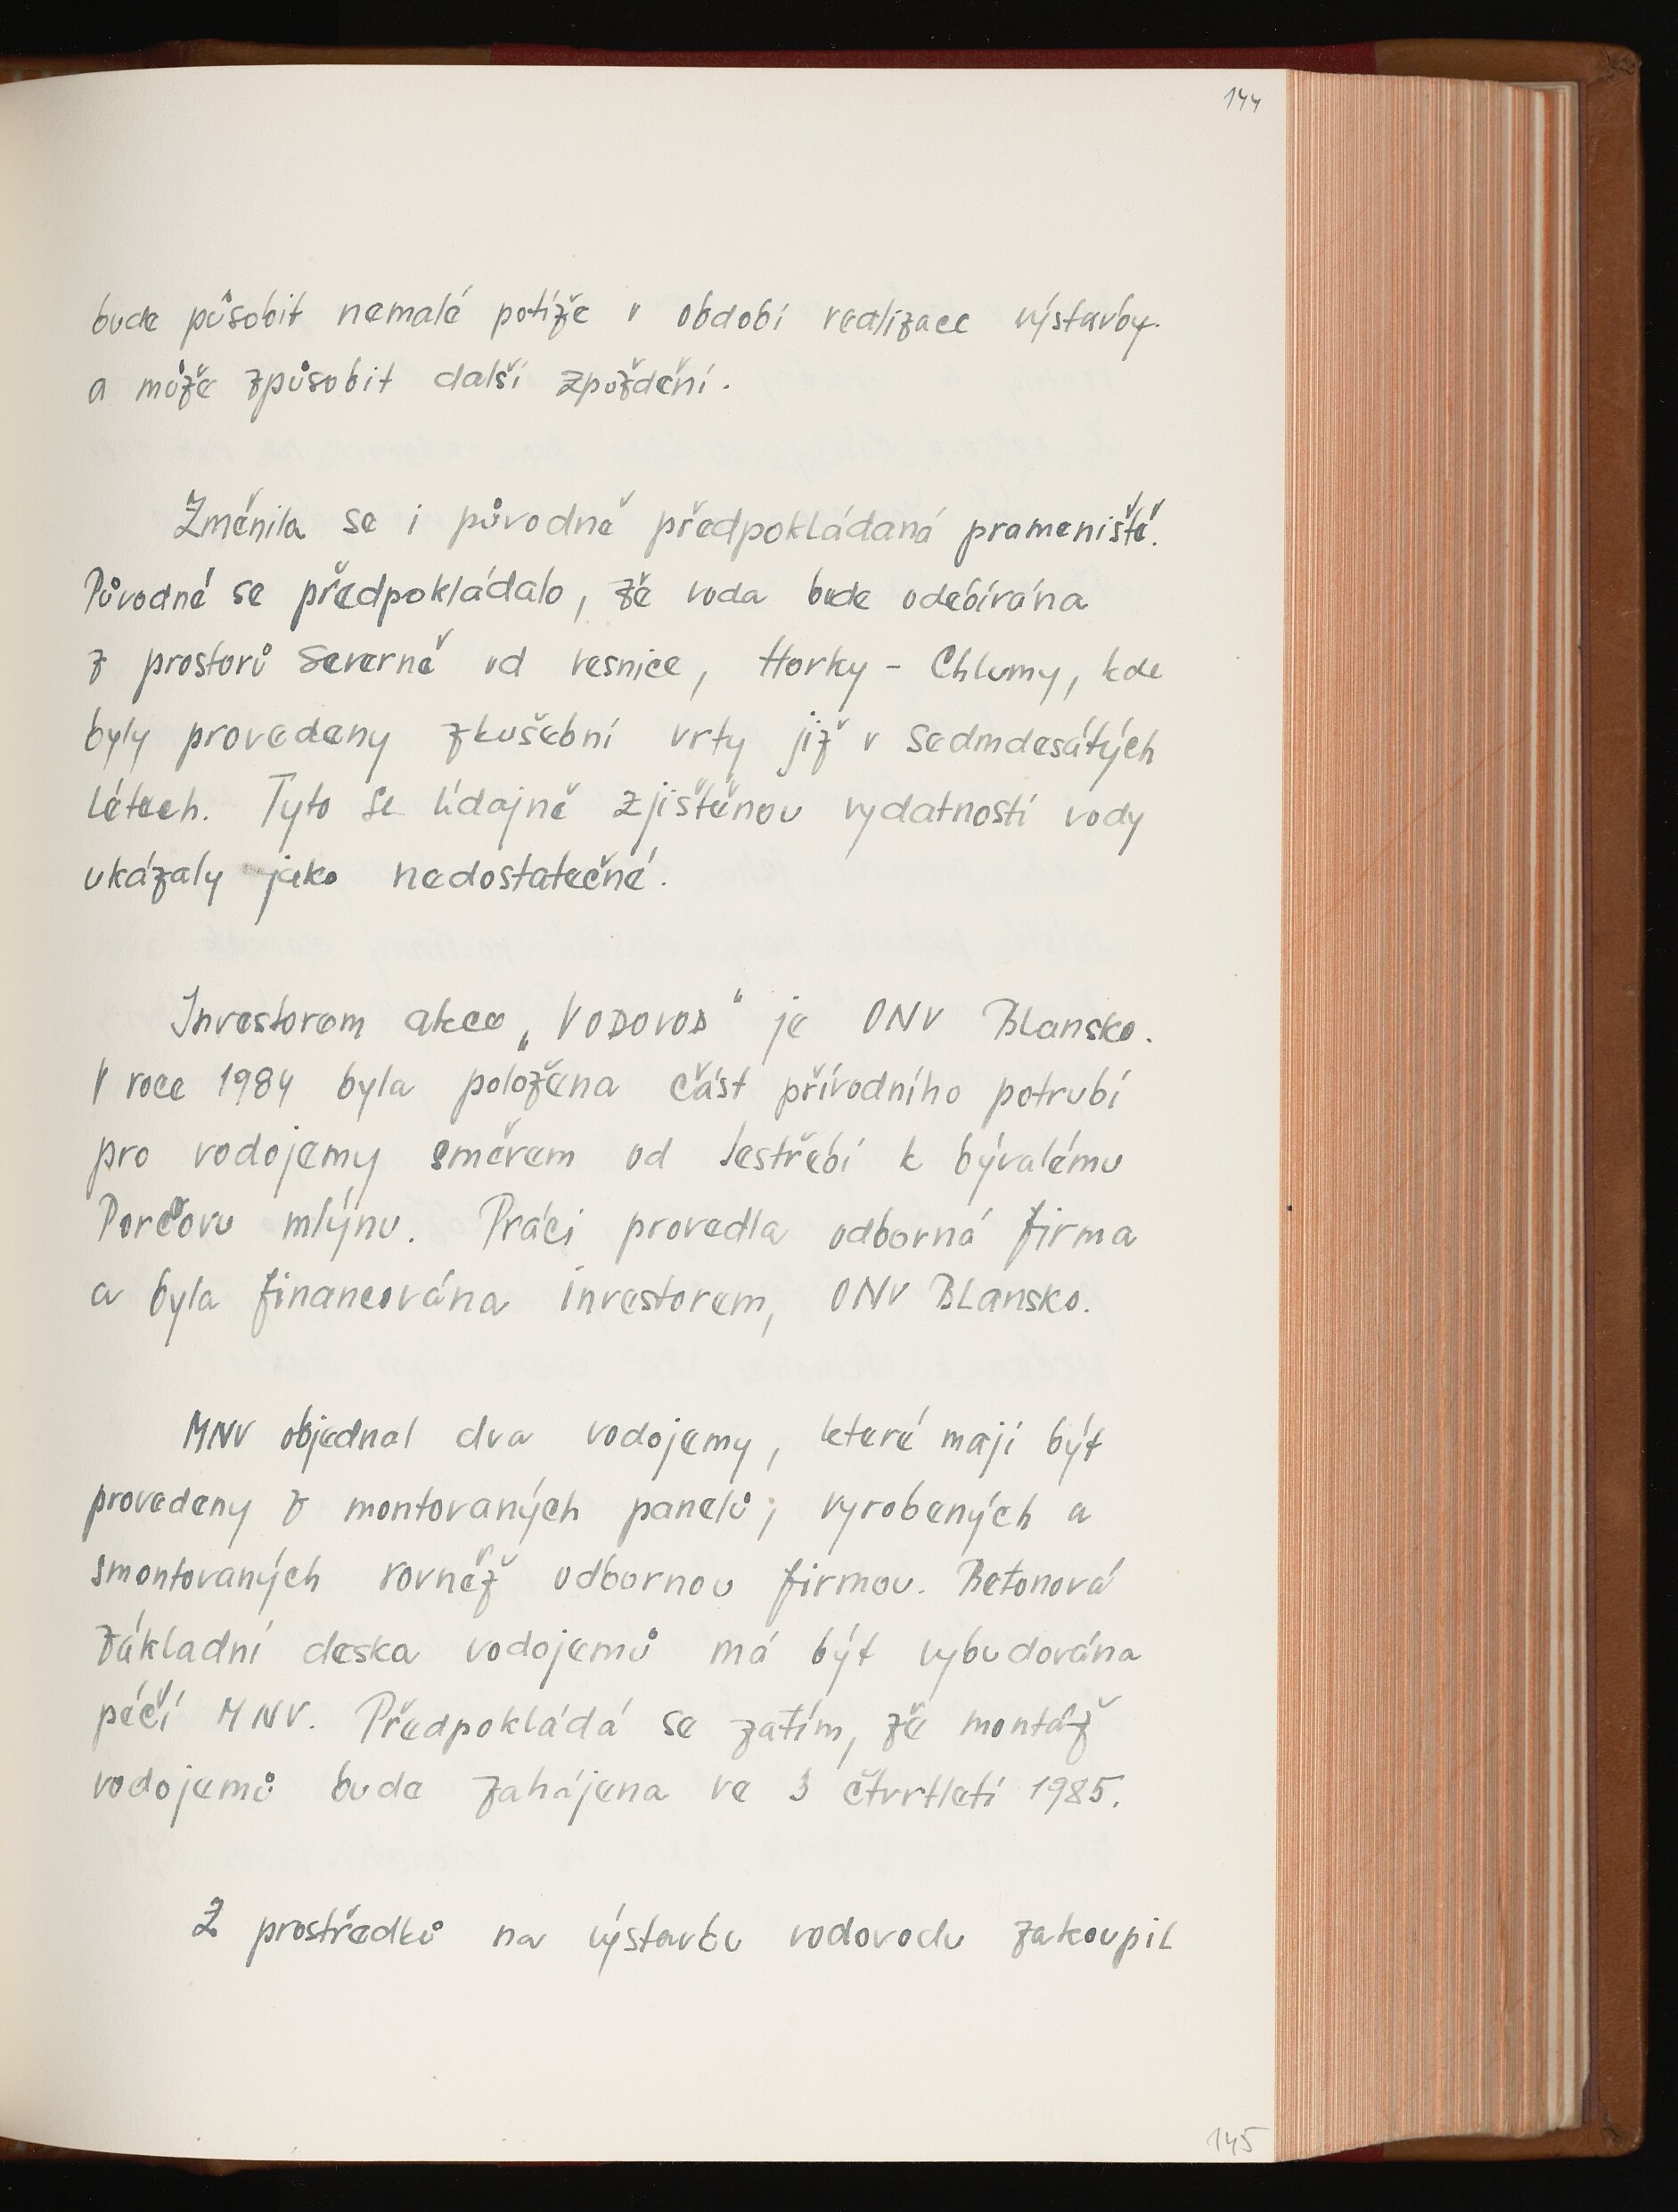 144
bude působit nemalé potíže v období realizace výstavby
a může způsobit další zpoždění.
Změnila se i původně předpokládaná prameniště.
Původně se předpokládalo, že voda bude odebírána
z prostorů severně od vesnice, Horky - Chlumy, kde
byly provedeny zkušební vrty již v sedmdesátých
létech. Tyto se údajně zjištěnou vydatností vody
ukázaly jako nedostatečné.
Investorem akce „VODOVOD“ je ONV Blansko.
V roce 1984 byla položena část přívodního potrubí
pro vodojemy směrem od Jestřebí k bývalému
Porčovu mlýnu. Práci provedla odborná firma
a byla financována investorem, ONV Blansko.
MNV objednal dva vodojemy, které mají být
provedeny z montovaných panelů, vyrobených a
smontovaných rovněž odbornou firmou. Betonová
základní deska vodojemů má být vybudována
péčí MNV. Předpokládá se zatím, že montáž
vodojemů bude zahájena ve 3 čtvrtletí 1985.
Z prostředků na výstavbu vodovodu zakoupil
145